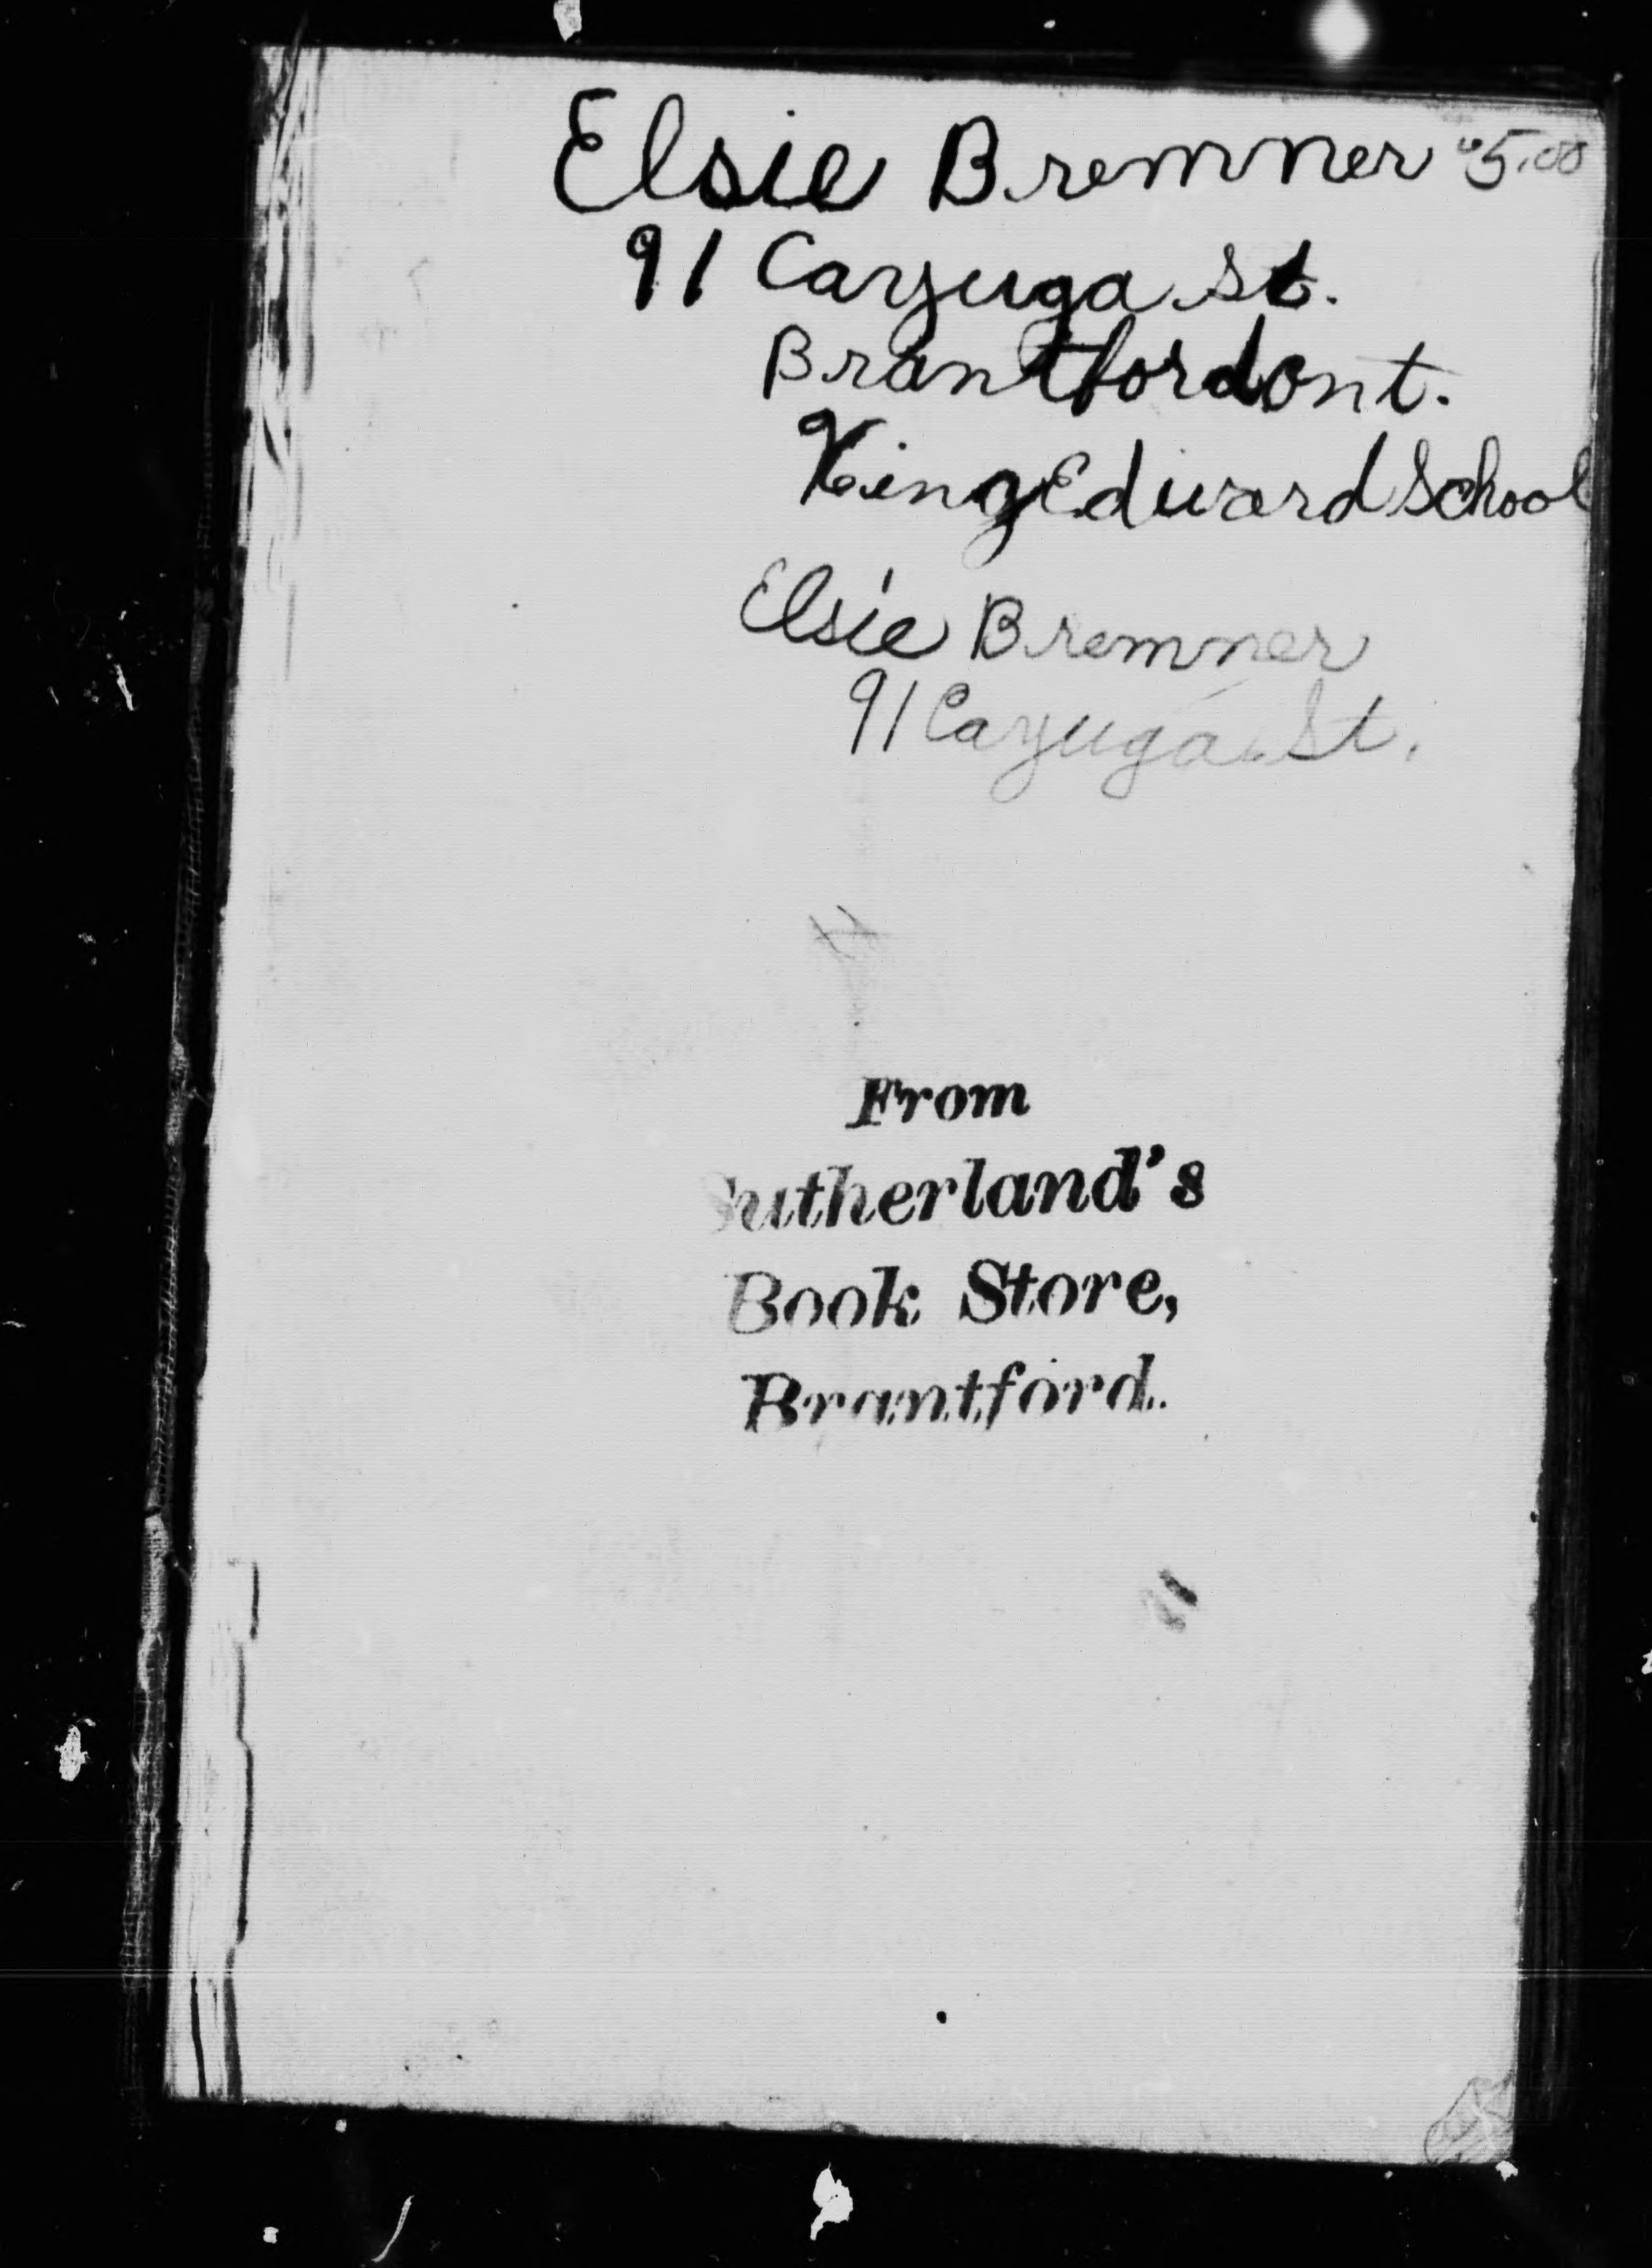 Elsie Bremner 5.00
91 Cayuga St.
Brantford Ont.
King Edward School
Elsie Bremner
91 Cayuga St.
From
Sutherland's
Book Store,
Brantford.